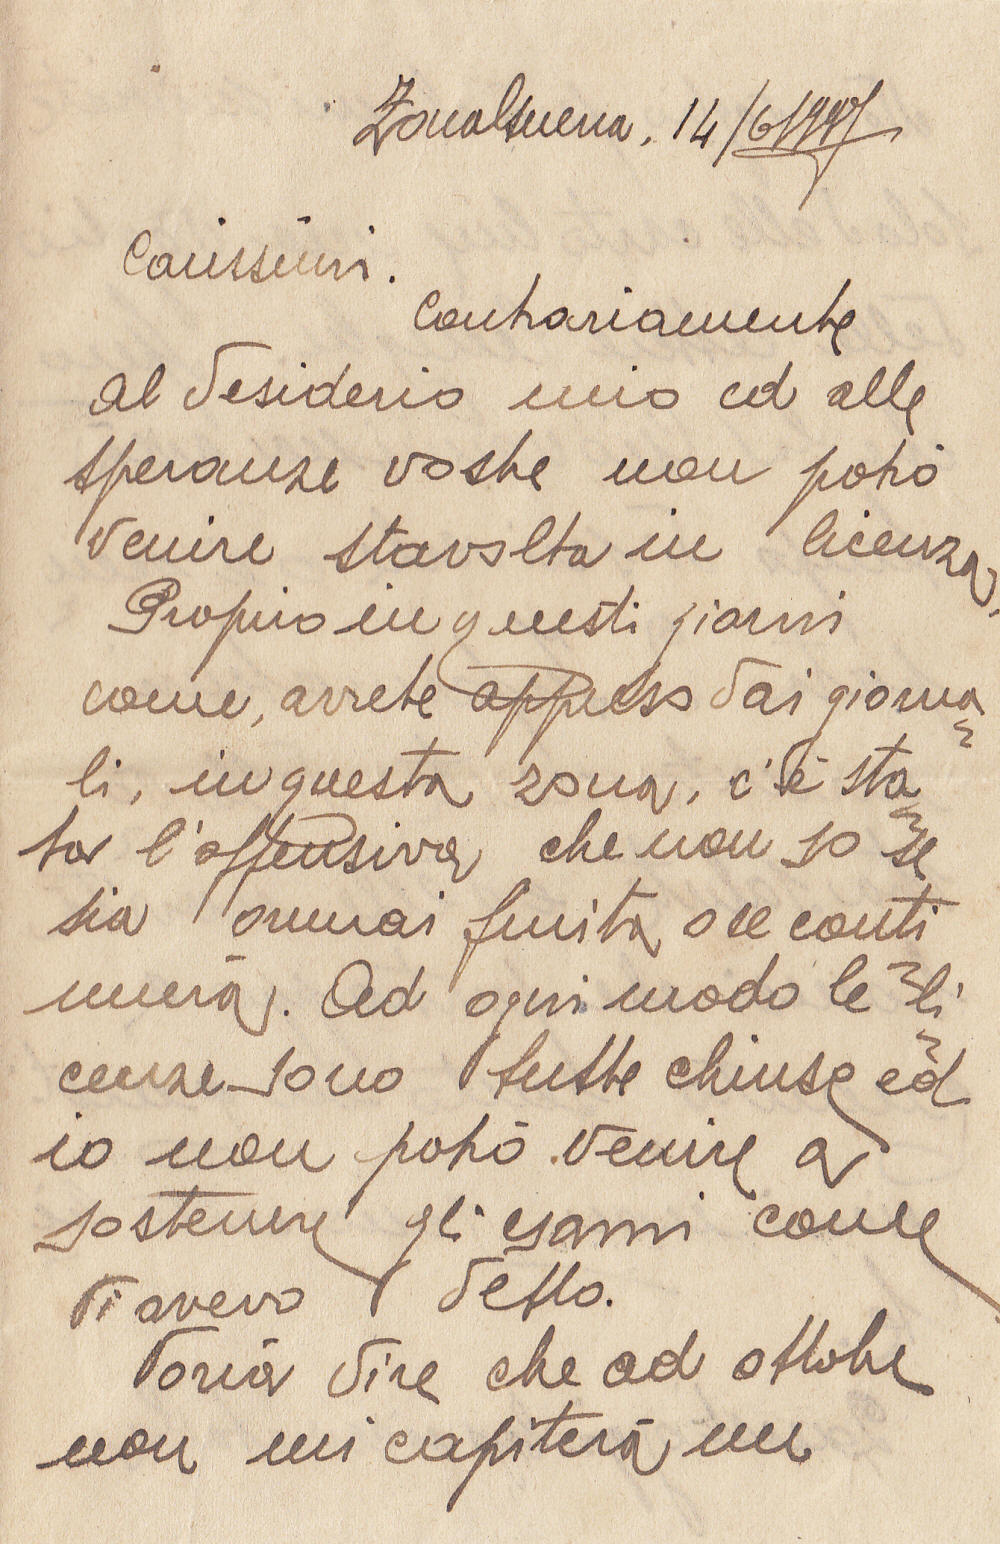 Zona Guerra, 14/6/1917
Carissimi.
Contrariamente
al desiderio mio ed alle
speranze vostre non potrò
venire stavolta in licenza,
Proprio in questi giorni
come, avrete appreso dai giorna=
li, in questa zona, c'è sta=
ta l'offensiva che non so se
sia ormai finita, o se conti=
nuerà. Ad ogni modo le li=
cenze sono tutte chiuse ed
io non potrò venire a
sostenere gli esami come
vi avevo detto.
Vorrà dire che ad ottobre
non mi capiterà un